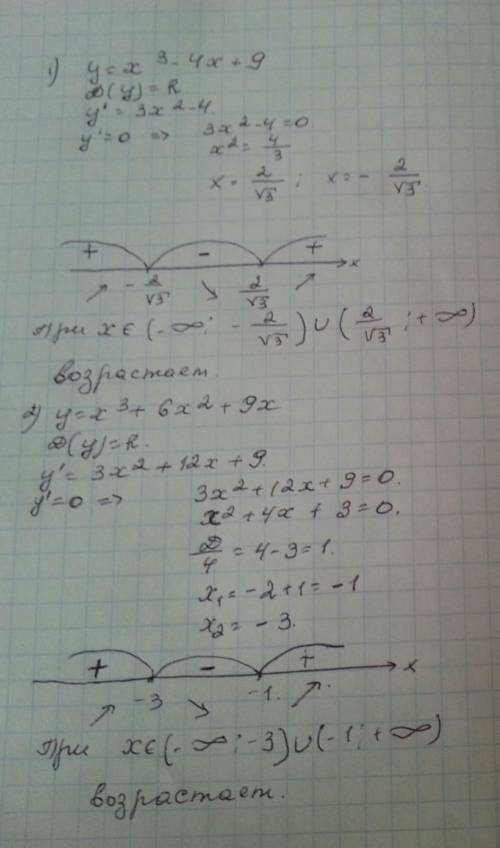 1) y = x³ - 4x + 9
D(y) = R.
y' = 3x² - 4.
y' = 0 => 3x² - 4 = 0
x² = 4/3
x = 2/√3 ; x = - 2/√3
+ - + x
↗ - 2/√3 ↘ 2/√3 ↗
При x ∈ (-∞; - 2/√3) ∪ (2/√3; +∞)
возрастает.
2) y = x³ + 6x² + 9x
D(y) = R.
y' = 3x² + 12x + 9.
y' = 0 => 3x² + 12x + 9 = 0.
x² + 4x + 3 = 0.
D/4 = 4 - 3 = 1.
x₁ = -2 + 1 = -1
x₂ = -3.
+ - + x
↗ -3 ↘ -1. ↗
При x ∈ (-∞; -3) ∪ (-1; +∞)
возрастает.